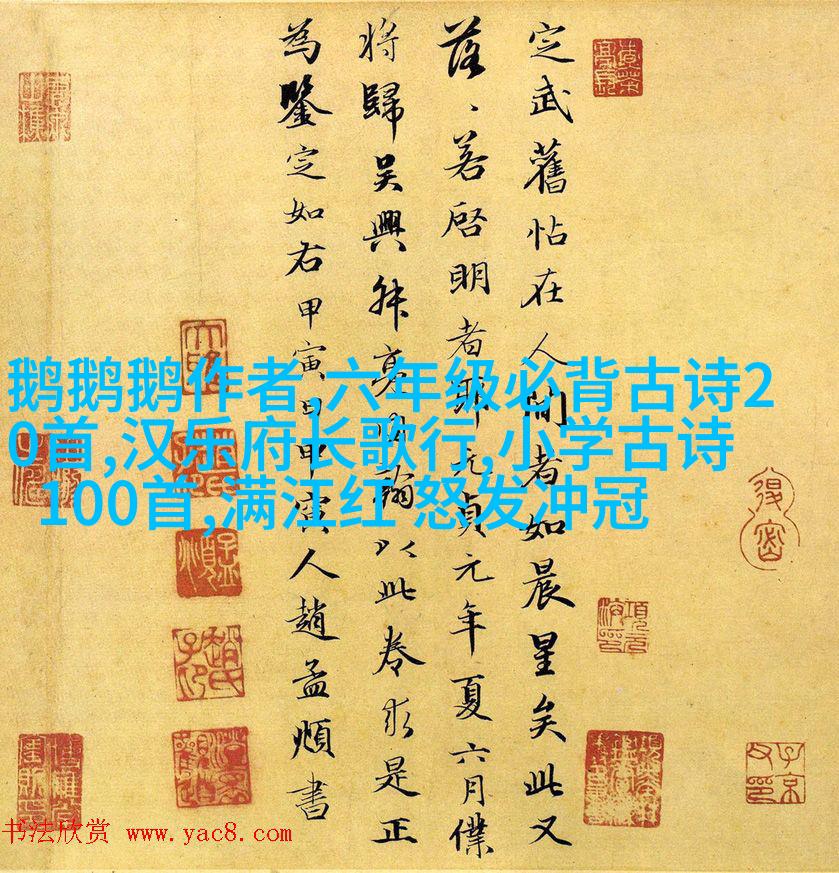 定武舊帖在人間者如晨星矣此又
落、若啓明者耶元貞元年夏六月僕
將歸吳興舜亮內翰以此卷求是正
為鑒定如右甲寅日甲寅人趙孟頫書
鹅鹅鹅作者,六年级必背古诗2
0首,汉乐府长歌行,小学古诗
100首,满江红 怒发冲冠
书法欣赏 www.yac8.com